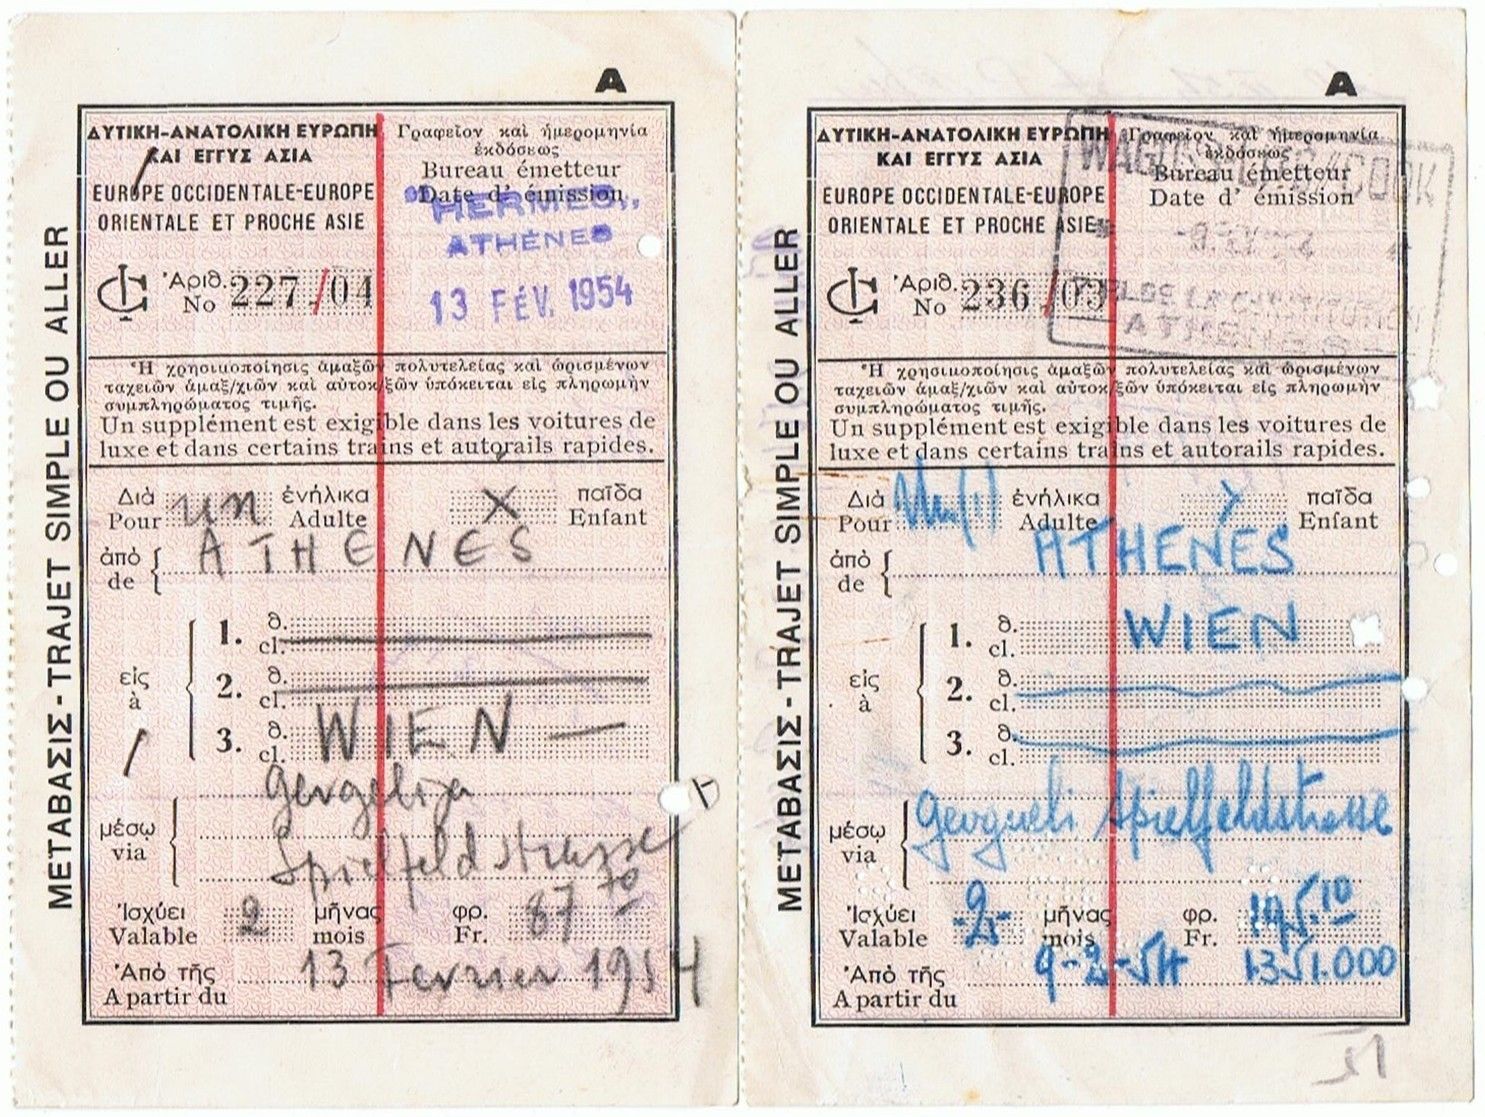 A
ΔΥΤΙΚΗ-ΑΝΑΤΟΛΙΚΗ ΕΥΡΩΠΗ
ΚΑΙ ΕΓΓΥΣ ΑΣΙΑ
EUROPE OCCIDENTALE-EUROPE
ORIENTALE ET PROCHE ASIE
Γραφεῖον καὶ ἡμερομηνία
ἐκδόσεως
Bureau émetteur
Date d' émission
"HERMES„
ATHÈNES
13 FÉV. 1954
Ἀριθ.
No 227/04
Ἡ χρησιμοποίησις ἁμαξῶν πολυτελείας καὶ ὡρισμένων
ταχειῶν ἁμαξ/χιῶν καὶ αὐτοκ/ξῶν ὑπόκειται εἰς πληρωμὴν
συμπληρώματος τιμῆς.
Un supplément est exigible dans les voitures de
luxe et dans certains trains et autorails rapides.
Διὰ un ἐνήλικα X παῖδα
Pour Adulte Enfant
ἀπὸ ATHENES
de
εἰς
à
1. θ.
cl.
2. θ.
cl.
3. θ. WIEN —
cl.
μέσῳ Gevgelija
via Spielfeld Strasse
Ἰσχύει 2 μῆνας φρ. 87 70
Valable mois Fr.
Ἀπὸ τῆς 13 Fevrier 1954
A partir du
ΜΕΤΑΒΑΣΙΣ - TRAJET SIMPLE OU ALLER
A
ΔΥΤΙΚΗ-ΑΝΑΤΟΛΙΚΗ ΕΥΡΩΠΗ
ΚΑΙ ΕΓΓΥΣ ΑΣΙΑ
EUROPE OCCIDENTALE-EUROPE
ORIENTALE ET PROCHE ASIE
Γραφεῖον καὶ ἡμερομηνία
ἐκδόσεως
Bureau émetteur
Date d' émission
COOK
ATHENES
Ἀριθ.
No 236/03
Ἡ χρησιμοποίησις ἁμαξῶν πολυτελείας καὶ ὡρισμένων
ταχειῶν ἁμαξ/χιῶν καὶ αὐτοκ/ξῶν ὑπόκειται εἰς πληρωμὴν
συμπληρώματος τιμῆς.
Un supplément est exigible dans les voitures de
luxe et dans certains trains et autorails rapides.
Διὰ ἐνήλικα παῖδα
Pour Adulte Enfant
ἀπὸ ATHENES
de
εἰς
à
1. θ. WIEN
cl.
2. θ.
cl.
3. θ.
cl.
μέσῳ Gevgueli Spielfeldstrasse
via
Ἰσχύει -2- μῆνας φρ.
Valable mois Fr.
Ἀπὸ τῆς 9-2-54 1351.000
A partir du
ΜΕΤΑΒΑΣΙΣ - TRAJET SIMPLE OU ALLER